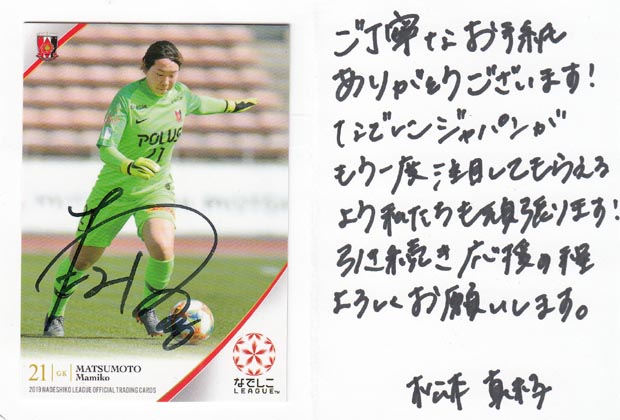 POLUS
21
21 GK MATSUMOTO
Mamiko
2019 NADESHIKO LEAGUE OFFICIAL TRADING CARDS
なでしこ
LEAGUE TM
ご丁寧なお手紙
ありがとうございます!
なでしこジャパンが
もう一度注目してもらえる
よう私たちも頑張ります!
引き続き応援の程
よろしくお願いします。
松本 真未子